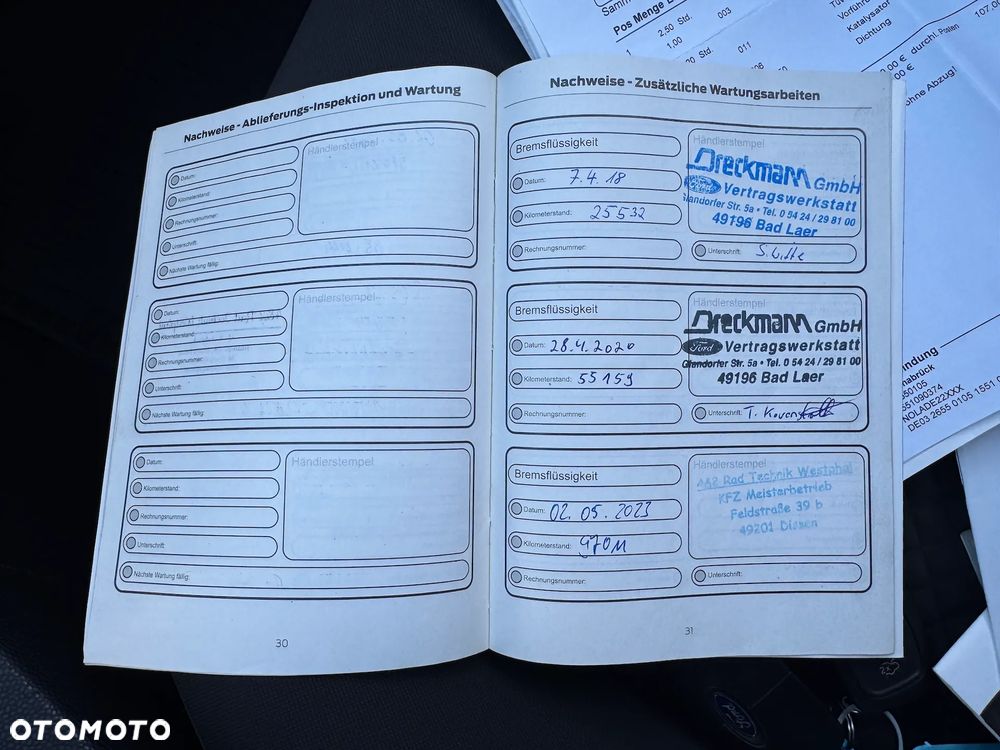 Pos Menge
2,50 Std.
003
Katalysator
1
1,00
Dichtung
011
107,00
durchl. Posten
ohne Abzug!
Nachweise - Ablieferungs-Inspektion und Wartung
Händlerstempel
Datum:
Kilometerstand:
Rechnungsnummer:
Unterschrift:
Nächste Wartung fällig:
Händlerstempel
Datum:
Kilometerstand:
Rechnungsnummer:
Unterschrift:
Nächste Wartung fällig:
Händlerstempel
Datum:
Kilometerstand:
Rechnungsnummer:
Unterschrift:
Nächste Wartung fällig:
30
Nachweise - Zusätzliche Wartungsarbeiten
Bremsflüssigkeit
Datum: 7.4.18
Kilometerstand: 25532
Rechnungsnummer:
Händlerstempel
Dreckmann GmbH
Ford Vertragswerkstatt
Glandorfer Str. 5a • Tel. 0 54 24 / 29 81 00
49196 Bad Laer
Unterschrift:
Bremsflüssigkeit
Datum: 28.4.2020
Kilometerstand: 55159
Rechnungsnummer:
Händlerstempel
Dreckmann GmbH
Ford Vertragswerkstatt
Glandorfer Str. 5a • Tel. 0 54 24 / 29 81 00
49196 Bad Laer
Unterschrift:
Bremsflüssigkeit
Datum: 02.05.2023
Kilometerstand: 97011
Rechnungsnummer:
Händlerstempel
Rad Technik Westphal
KFZ Meisterbetrieb
Feldstraße 39 b
49201 Dissen
Unterschrift:
31
NOLADE22XXX
DE03 2655 0105 1551 0
Ford
OTOMOTO